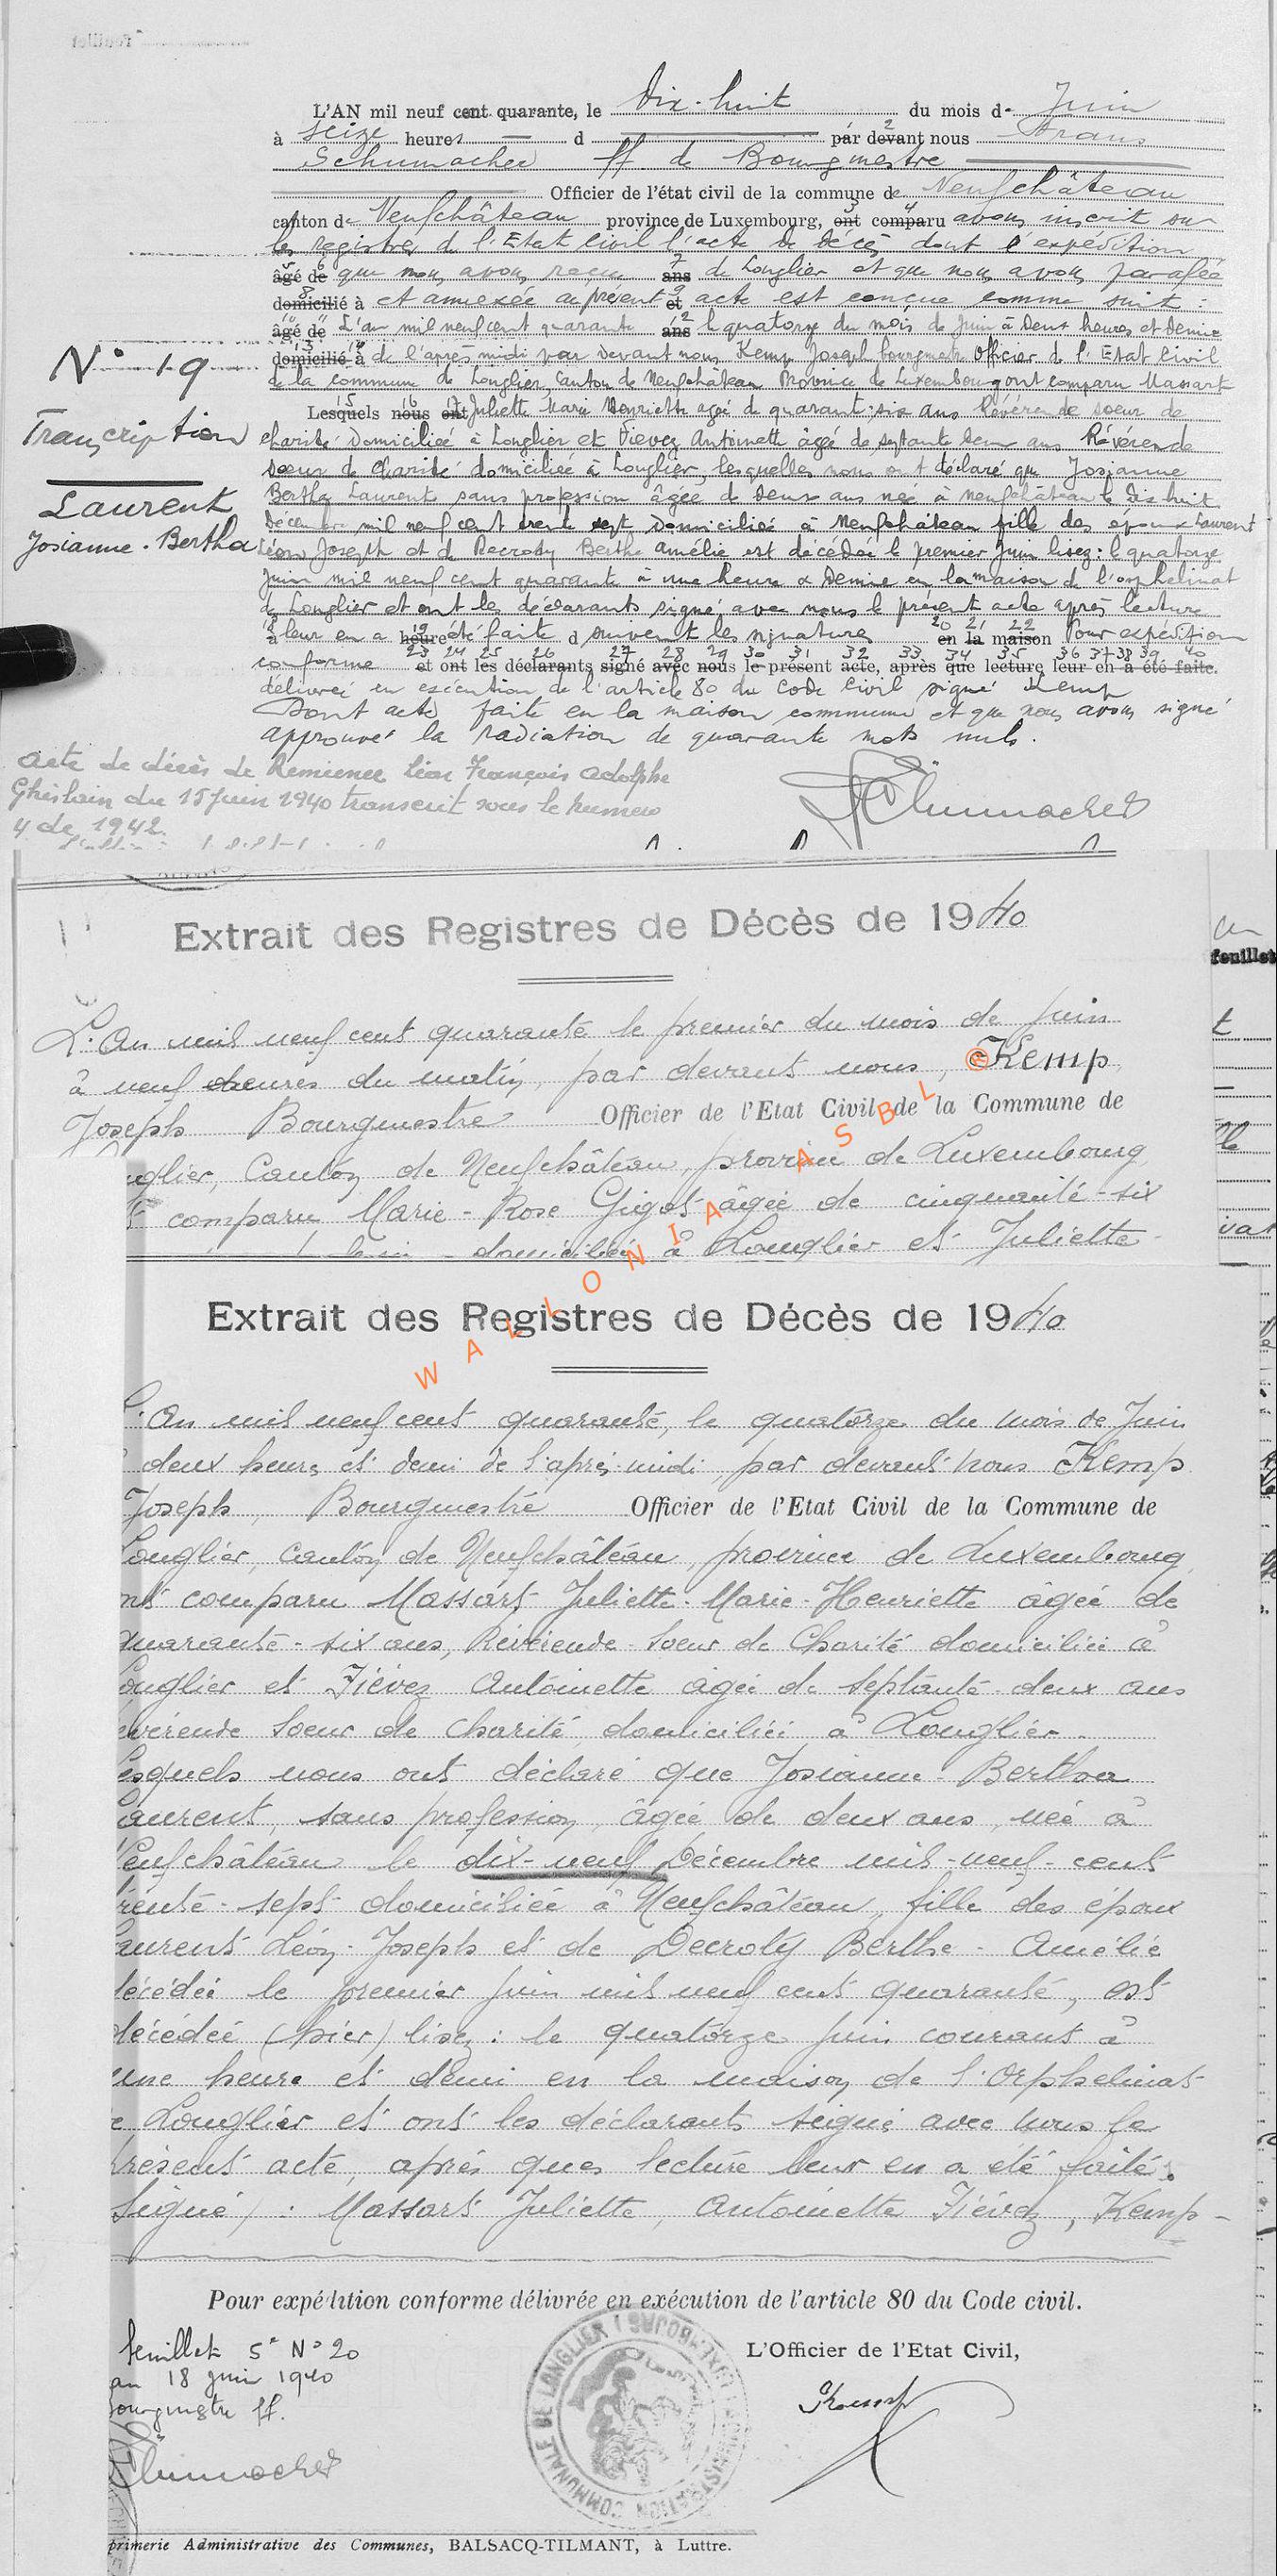 feuillet
L'AN mil neuf cent quarante, le Dix-huit du mois de Juin
à seize heures d par devant nous Frans
Schumacher ff de Bourgmestre
Officier de l'état civil de la commune de Neufchâteau
canton de Neufchâteau province de Luxembourg, ont comparu avons inscrit sur
les registres de l'Etat Civil l'acte de décès dont l'expédition
âgé de que nous avons reçue ans de Longlier et que nous avons parafée
domicilié à et annexée au présent et acte est conçue comme suit :
âgé de L'an mil neuf cent quarante ans le quatorze du mois de Juin à Deux heures et Demie
domicilié à de l'après midi par devant nous Kemp Joseph bourgmestre Officier de l'Etat Civil
de la commune de Longlier, Canton de Neufchâteau Province de Luxembourg ont comparu Massart
Lesquels nous ont Juliette Marie Henriette agée de quarante-six ans Révérende soeur de
charité Domiciliée à Longlier et Fievez Antoinette âgée de septante deux ans Révérende
soeur de Charité domiciliée à Longlier, lesquelles nous ont déclaré que Josianne
Bertha Laurent sans profession âgée de Deux ans née à Neufchâteau le Dix huit
Décembre mil neuf cent trente sept Domiciliée à Neufchâteau fille des époux Laurent
Léon Joseph et de Decroly Berthe Amélie est décédée le premier Juin lisez : le quatorze
Juin mil neuf cent quarante à une heure & Demie en la maison de l'orphelinat
de Longlier et ont les déclarants signé avec nous le présent acte après lecture
à leur en a heure été faite d suivent les signatures en la maison Pour expédition
conforme et ont les déclarants signé avec nous le présent acte, après que lecture leur en a été faite.
délivrée en exécution de l'article 80 du Code Civil signé Kemp
Dont acte faite en la maison commune et que nous avons signé
approuvé la radiation de quarante mots nuls.
N° 19
Transcription
Laurent
Josianne-Bertha
Acte de décès de Remience Léon François Adolphe
Ghislain du 15 juin 1940 transcrit sous le numéro
4 de 1942.
Schumacher
Extrait des Registres de Décès de 1940
feuillet
L'An mil neuf cent quarante le premier du mois de Juin
à neuf heures du matin, par devant nous, Kemp
Joseph Bourgmestre Officier de l'Etat Civil de la Commune de
nglier, Canton de Neufchâteau, province de Luxembourg
comparu Marie-Rose Gigot âgée de cinquante-six
domiciliée à Longlier et Juliette
© WALLONIA ASBL
Extrait des Registres de Décès de 1940
L'An mil neuf cent quarante, le quatorze du mois de Juin
deux heures et demi de l'après-midi, par devant nous Kemp
Joseph, Bourgmestre Officier de l'Etat Civil de la Commune de
Longlier, Canton de Neufchâteau, province de Luxembourg
ont comparu Massart Juliette-Marie-Henriette âgée de
quarante-six ans, Révérende-Soeur de Charité domiciliée à
Longlier et Fiévez Antoinette âgée de septante-deux ans
evérende Soeur de Charité domiciliée à Longlier.
Lesquels nous ont déclaré que Josianne-Bertha
Laurent, sans profession, âgée de deux ans, née à
Neufchâteau le dix-neuf Décembre mil-neuf-cent
trente-sept domiciliée à Neufchâteau, fille des époux
Laurent Léon-Joseph et de Decroly Berthe-Amélie
décédée le premier juin mil neuf cent quarante, est
décédée (hier) lisez : le quatorze juin courant à
une heure et demi en la maison de l'Orphelinat
de Longlier et ont les déclarants seigné avec nous le
présent acte, après ques lecture leur en a été faite.
Signé) : Massart Juliette, Antoinette Fiévez, Kemp-
Pour expédition conforme délivrée en exécution de l'article 80 du Code civil.
feuillet 5e N° 20
au 18 juin 1940
Bourgmestre ff.
Schumacher
L'Officier de l'Etat Civil,
Kemp
ADMINISTRATION COMMUNALE DE LONGLIER (LUXEMBOURG)
primerie Administrative des Communes, BALSACQ-TILMANT, à Luttre.